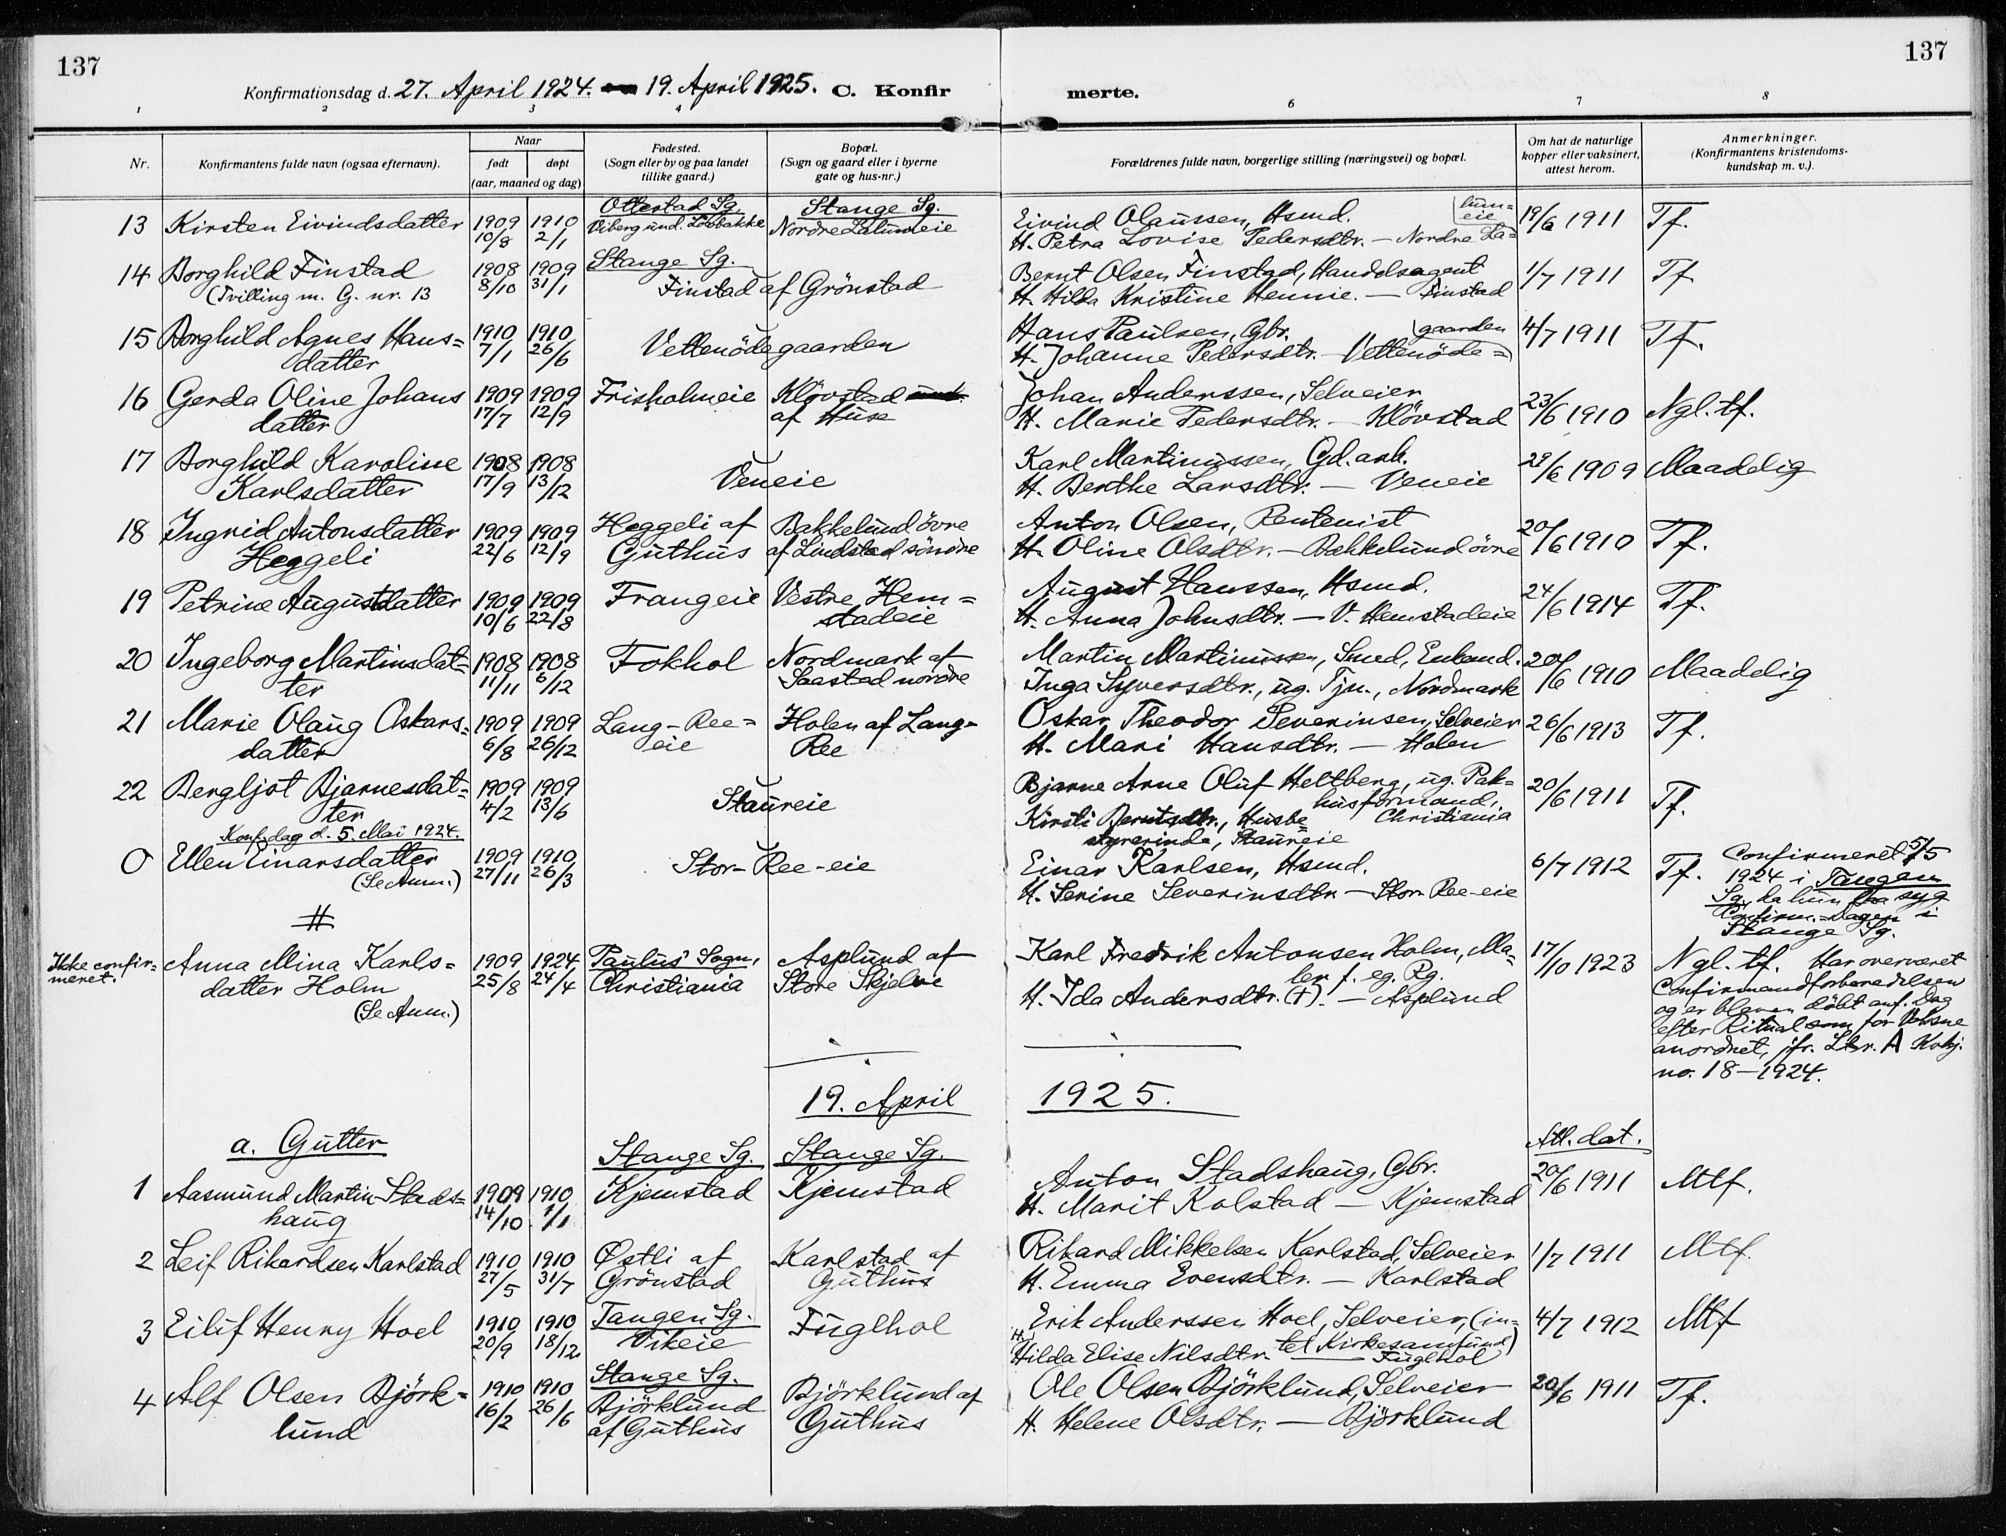 137
137
Konfirmationsdag d. 27. April 1924. — 19. April 1925. C. Konfir merte.
1 2 3 4 6 7 8
Nr.
Konfirmantens fulde navn (ogsaa efternavn).
Naar
født døpt
(aar, maaned og dag)
Fødested.
(Sogn eller by og paa landet
tillike gaard.)
Bopæl.
(Sogn og gaard eller i byerne
gate og hus-nr.)
Forældrenes fulde navn, borgerlige stilling (næringsvei) og bopæl.
Om hat de naturlige
kopper eller vaksinert,
attest herom.
Anmerkninger.
(Konfirmantens kristendoms-
kundskap m. v.).
Ottestad Sg. Stange Sg.
13 Kirsten Eivindsdatter 1909 10/8 1910 2/1 Viberg und. Nordre Lalumeie
Eivind Olaussen, Hsmd.
H. Petra Lovise Pedersdtr. — Nordre La= lum= eie
19/6 1911 Tf.
14 Borghild Finstad 1908 8/10 1909 31/1
(Tvilling m. G. nr. 13
Stange Sg.
Finstad af Grönstad
Bernt Olsen Finstad, Handelsagent
H. Hilda Kristine Hennie. — Finstad
1/7 1911 Tf
15 Borghild Agnes Hans=
datter
1910 7/1 1910 26/6
Vettenödegaarden
Hans Paulsen, Gbr.
H. Johanne Pedersdtr. — Vettenöde= gaarden
4/7 1911 Tf.
16 Gerda Oline Johans
datter
1909 17/7 1909 12/9
Frisholmeie Klövstad und.
af Huse
Johan Anderssen, Selveier
H. Marie Pedersdtr. — Klövstad
23/6 1910 Ngl. tf.
17 Borghild Karoline
Karlsdatter
1908 17/9 1908 13/12
Veneie
Karl Martinussen, Gd. arb.
H. Berthe Larsdtr. — Veneie
29/6 1909 Maadelig
18 Ingrid Antonsdatter
Heggeli
1909 22/6 1909 12/9
Heggeli af
Guthus
Bakkelund övre
af Lindstad söndre
Anton Olsen, Rentenist
H. Oline Olsdtr. — Bakkelund övre
20/6 1910 Tf.
19 Petrine Augustdatter 1909 10/6 1909 22/8
Frangeie Vestre Hem=
stadeie
August Hanssen, Hsmd.
H. Anna Johnsdtr. — V. Hemstadeie
24/6 1914 Tf.
20 Ingeborg Martinsdat=
ter
1908 11/11 1908 6/12
Fokhol Nordmark af
Saastad nordre
Martin Martinussen, Smed, Enkemd.
Inga Syversdtr., ug. Tjn., Nordmark
20/6 1910 Maadelig
21 Marie Olaug Oskars=
datter
1909 6/8 1909 26/12
Lang-Ree=
eie
Holen af Lang=
Ree
Oskar Theodor Severinsen, Selveier
H. Mari Hansdtr. — Holen
26/6 1913 Tf.
22 Bergljot Bjarnesdat=
ter
1909 4/2 1909 13/6
Staureie
Bjarne Arne Oluf Heltberg, ug. Pak=
husformand, Christiania
Kirsti Berntsdtr., Husbe=
styrerinde, Staureie
20/6 1911 Tf.
Konf. dag d. 5. Mai 1924.
0 Ellen Einarsdatter
(Se Anm.)
1909 27/11 1910 26/3
Stor-Ree-eie
Einar Karlsen, Hsmd.
H. Serine Severinsdtr. — Stor-Ree-eie
6/7 1912 Tf.
Confirmeret 5/5
1924 i Tangen
Sg., da hun var syg
Confirm.-Dagen i
Stange Sg.
#
Ikke confir=
meret.
Anna Mina Karls=
datter Holm
(Se Anm.)
1909 25/8 1924 24/4
Paulus' Sogn,
Christiania
Asplund af
Store Skjelve
Karl Fredrik Antonsen Holm, Ma=
ler f. eg. Rg.
H. Ida Andersdtr. (+). — Asplund
17/10 1923 Ngl. tf. Har overværet
Confirmandforberedelsen
og er bleven döbt anf. Dag
efter Ritual som for Voksne
anordnet, jfr. Ltr. A Kvkj.
no. 18 — 1924.
19. April 1925.
a. Gutter
Stange Sg. Stange Sg. Att. dat.
1 Aasmund Martin Stads=
haug
1909 14/10 1910 1/1
Kjemstad Kjemstad
Anton Stadshaug, Gbr.
H. Marit Kolstad — Kjemstad
20/6 1911 Mtf.
2 Leif Rikardsen Karlstad 1910 27/5 1910 31/7
Østli af
Grönstad
Karlstad af
Guthus
Rikard Mikkelsen Karlstad, Selveier
H. Emma Evensdtr. — Karlstad
1/7 1911 Mtf.
3 Eilif Henry Hoel 1910 20/9 1910 18/12
Tangen Sg.
Vikeie
Fuglhol
Erik Anderssen Hoel, Selveier, (in=
tet Kirkesamfund)
H. Hilda Elise Nilsdtr. — Fuglhol
4/7 1912 Mtf
4 Alf Olsen Björk=
lund
1910 16/2 1910 26/6
Stange Sg.
Björklund
af Guthus
Björklund af
Guthus
Ole Olsen Björklund, Selveier
H. Helene Olsdtr. — Björklund
20/6 1911 Tf.